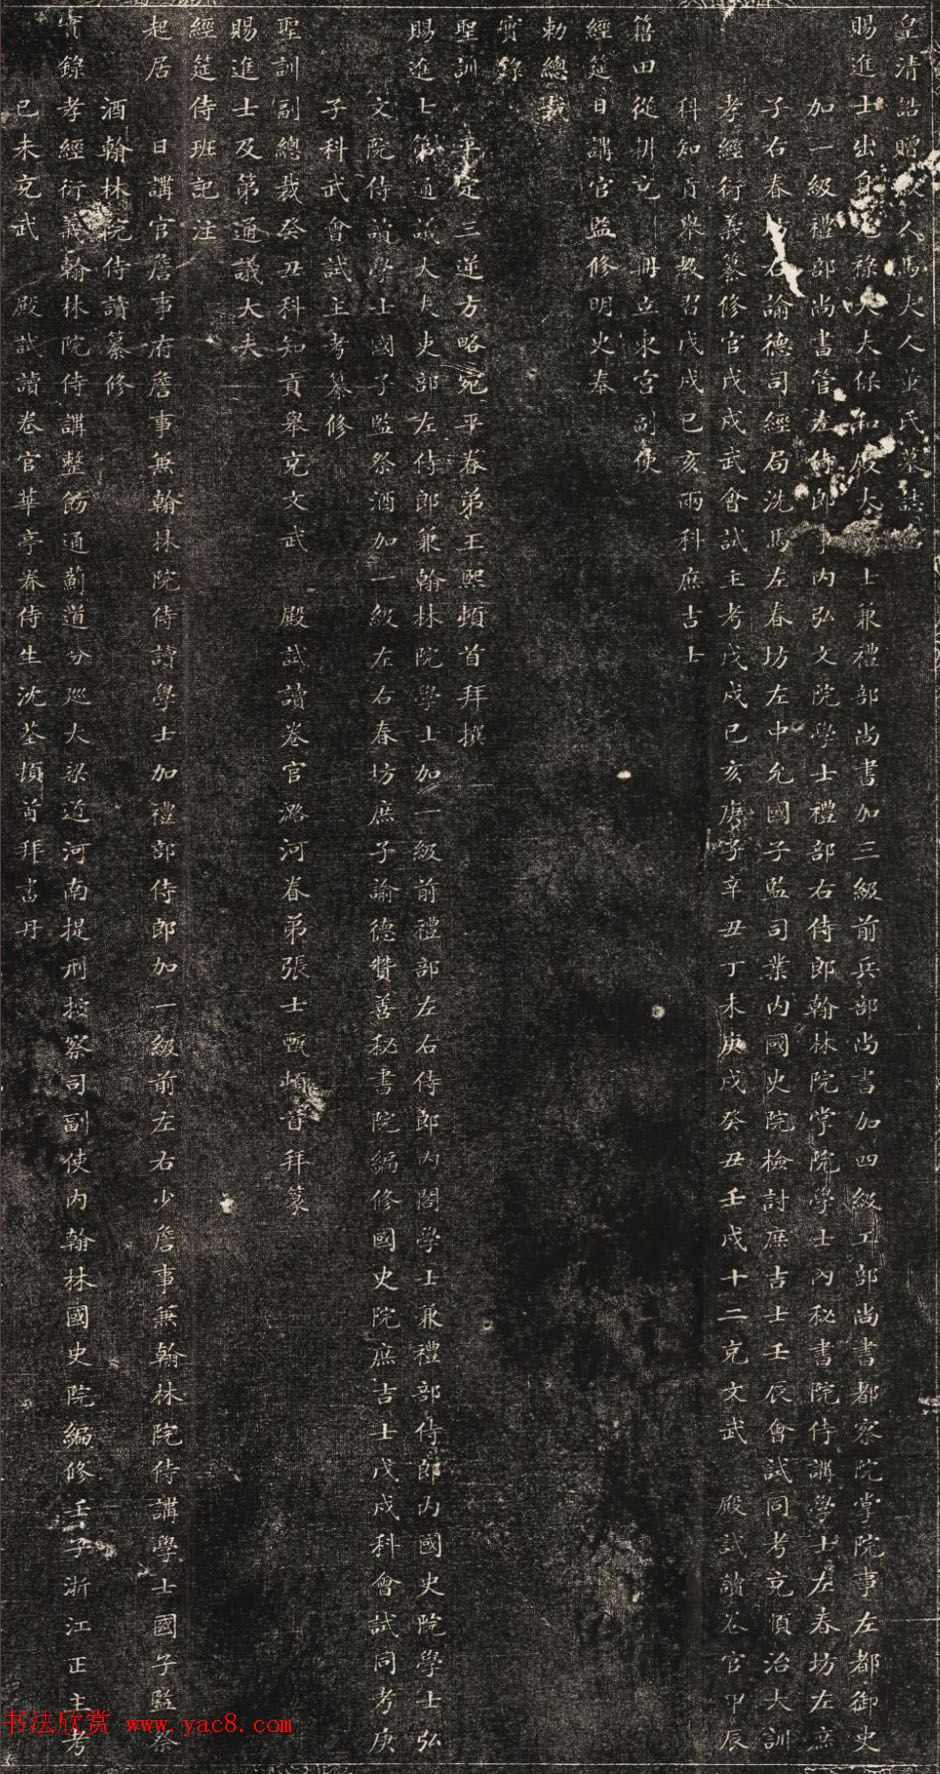 皇清誥贈人馬大人並氏墓誌
賜進士出身光祿大夫保和殿大士兼禮部尚書加三級前兵部尚書加四級工部尚書都察院掌院事左都御史
加一級禮部尚書管左侍郎事內弘文院學士禮部右侍郎翰林院掌院學士內秘書院侍講學士左春坊左庶
子右春右諭德司經局洗馬左春坊左中允國子監司業內國史院檢討庶吉士壬辰會試同考充順治大訓
孝經衍義纂修官戊戌武會試主考戊戌己亥庚子辛丑丁未庚戌癸丑壬戌十二充文武 殿試讀卷官甲辰
科知貢舉教召戊戌己亥兩科庶吉士
籍田從耕充冊立東宮副使
經筵日講官監修明史奉
勅總裁
實錄
聖訓平定三逆方略宛平眷弟王熙頓首拜撰
賜進士第通議大夫吏部左侍郎兼翰林院學士加一級前禮部左右侍郎內閣學士兼禮部侍郎內國史院學士弘
文院侍讀學士國子監祭酒加一級左右春坊庶子諭德贊善秘書院編修國史院庶吉士戊戌科會試同考庚
子科武會試主考纂修
聖訓副總裁癸丑科知貢舉充文武 殿試讀卷官潞河眷弟張士甄頓首拜篆
賜進士及第通議大夫
經筵侍班記注
起居 日講官詹事府詹事兼翰林院侍讀學士加禮部侍郎加一級前左右少詹事兼翰林院侍講學士國子監祭
酒翰林院侍讀纂修
實錄孝經衍義翰林院侍講整飭通薊道分巡大梁道河南提刑按察司副使內翰林國史院編修壬子浙江正主考
己未充武 殿試讀卷官華亭眷侍生沈荃頓首拜書丹
书法欣赏 www.yac8.com